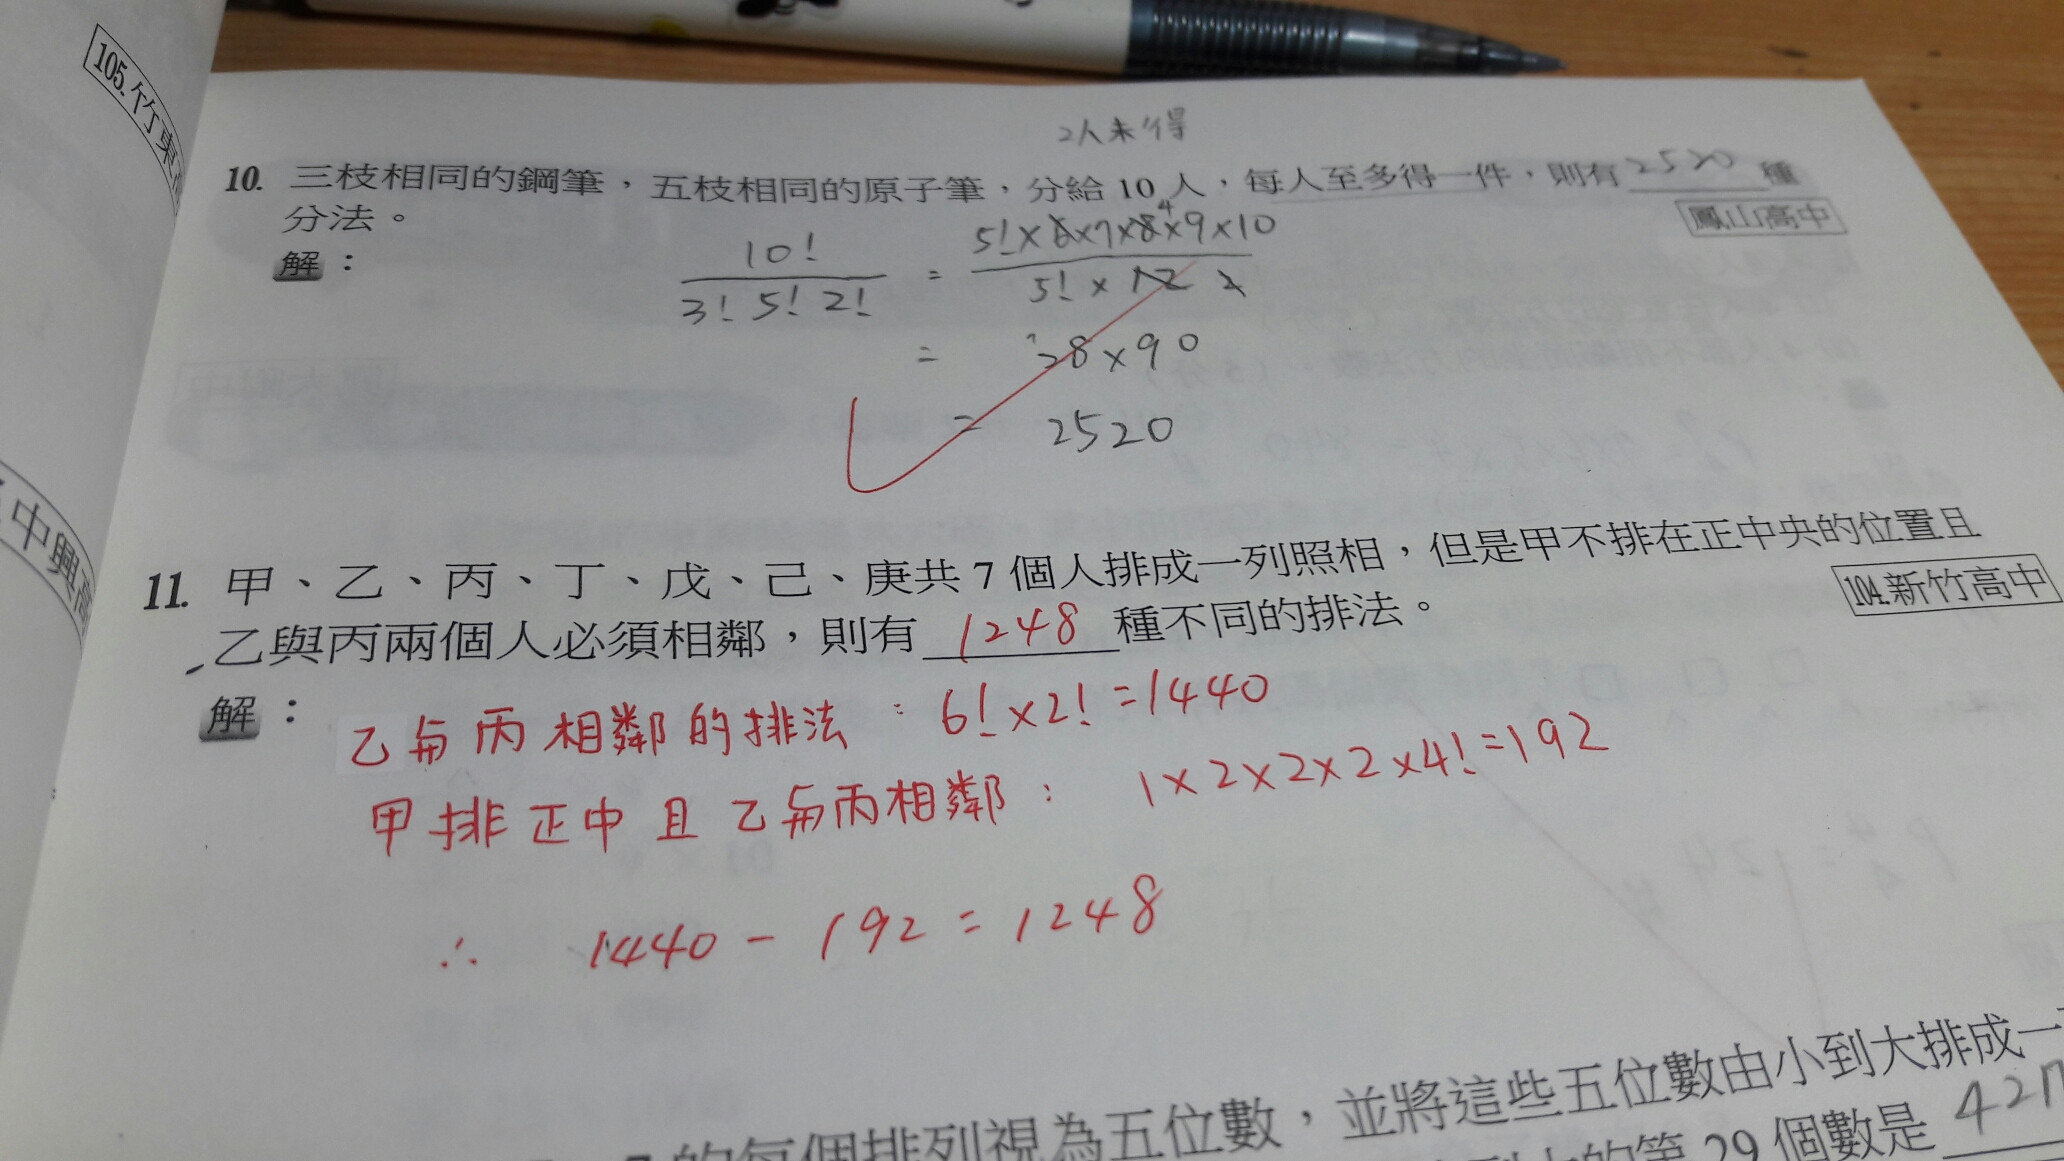 105.竹東高
中興高
2人未得
10. 三枝相同的鋼筆，五枝相同的原子筆，分給 10 人，每人至多得一件，則有 2520 種
分法。
鳳山高中
解：
10! / 3! 5! 2! = 5!×6×7×8×9×10 / 5!×12 2
4
= 28×90
= 2520
11. 甲、乙、丙、丁、戊、己、庚共 7 個人排成一列照相，但是甲不排在正中央的位置且
乙與丙兩個人必須相鄰，則有 1248 種不同的排法。
104.新竹高中
解：
乙与丙相鄰的排法：6!×2!=1440
甲排正中且乙与丙相鄰：1×2×2×2×4!=192
∴ 1440 - 192 = 1248
的每個排列視為五位數，並將這些五位數由小到大排成一
的第 29 個數是 421